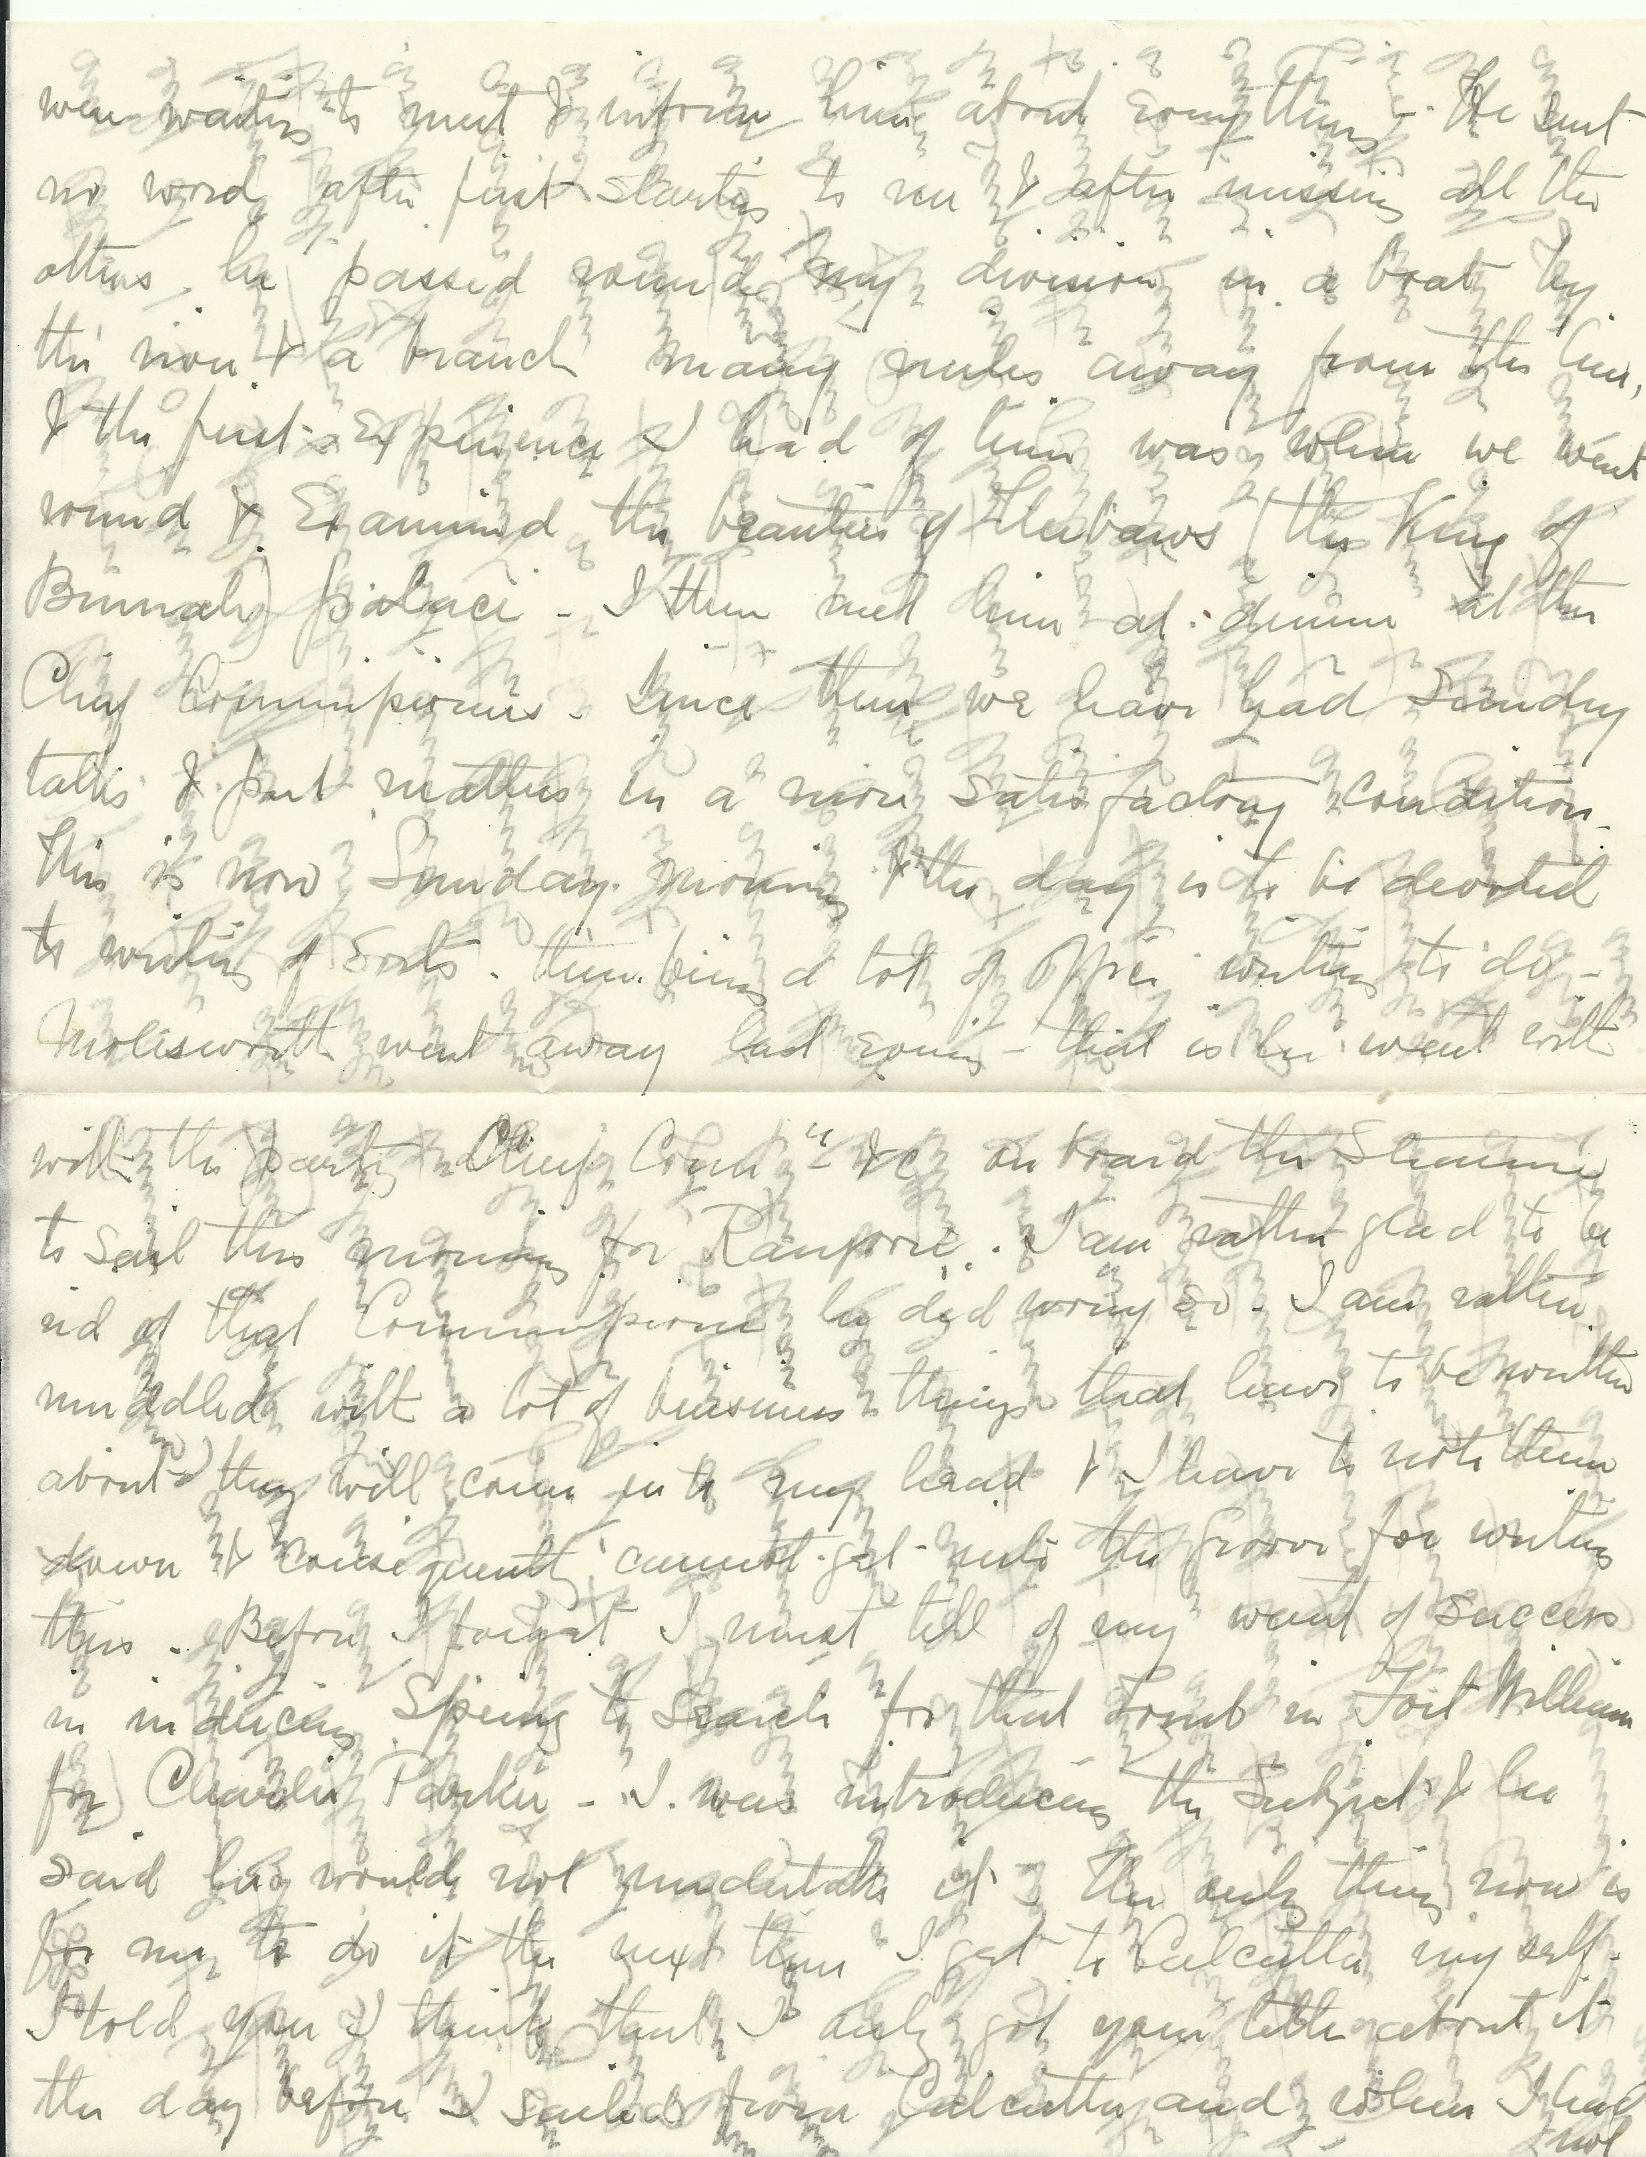 were waiting to meet & inform him about everything. He sent
no word after first starting to me & after missing all the
others he passed round my division in a boat by
the river & a branch many miles away from the line,
& the first experience I had of him was when we went
round & Examined the beauties of Theebaws (the King of
Burmah) palace - I then met him at dinner at the
Chief Commissioners. Since then we have had Sundry
talks & put matters in a more Satisfactory Condition.
This is now Sunday morning & the day is to be devoted
to writing of Sorts. there being a lot of Office writing to do -
Molesworth went away last evening - that is he went with
with the party Chief Comr &c on board the Steamer
to sail this morning for Rangoon. I am rather glad to be
rid of that Commissioner
I am rather
muddled with a lot of business things that have to be written
about & they will come into my head & I have to note them
down & consequently cannot get into the groove for writing
this. Before I forget I must tell of my want of success
in inducing Spring to Search for that Tomb in Fort William
for Charlie Parker - I was introducing the Subject & he
said he would not undertake it - The only thing now is
for me to do it the next time I get to Calcutta myself.
I told you I think that I only got your letter about it
the day before I sailed from Calcutta and when I had
not